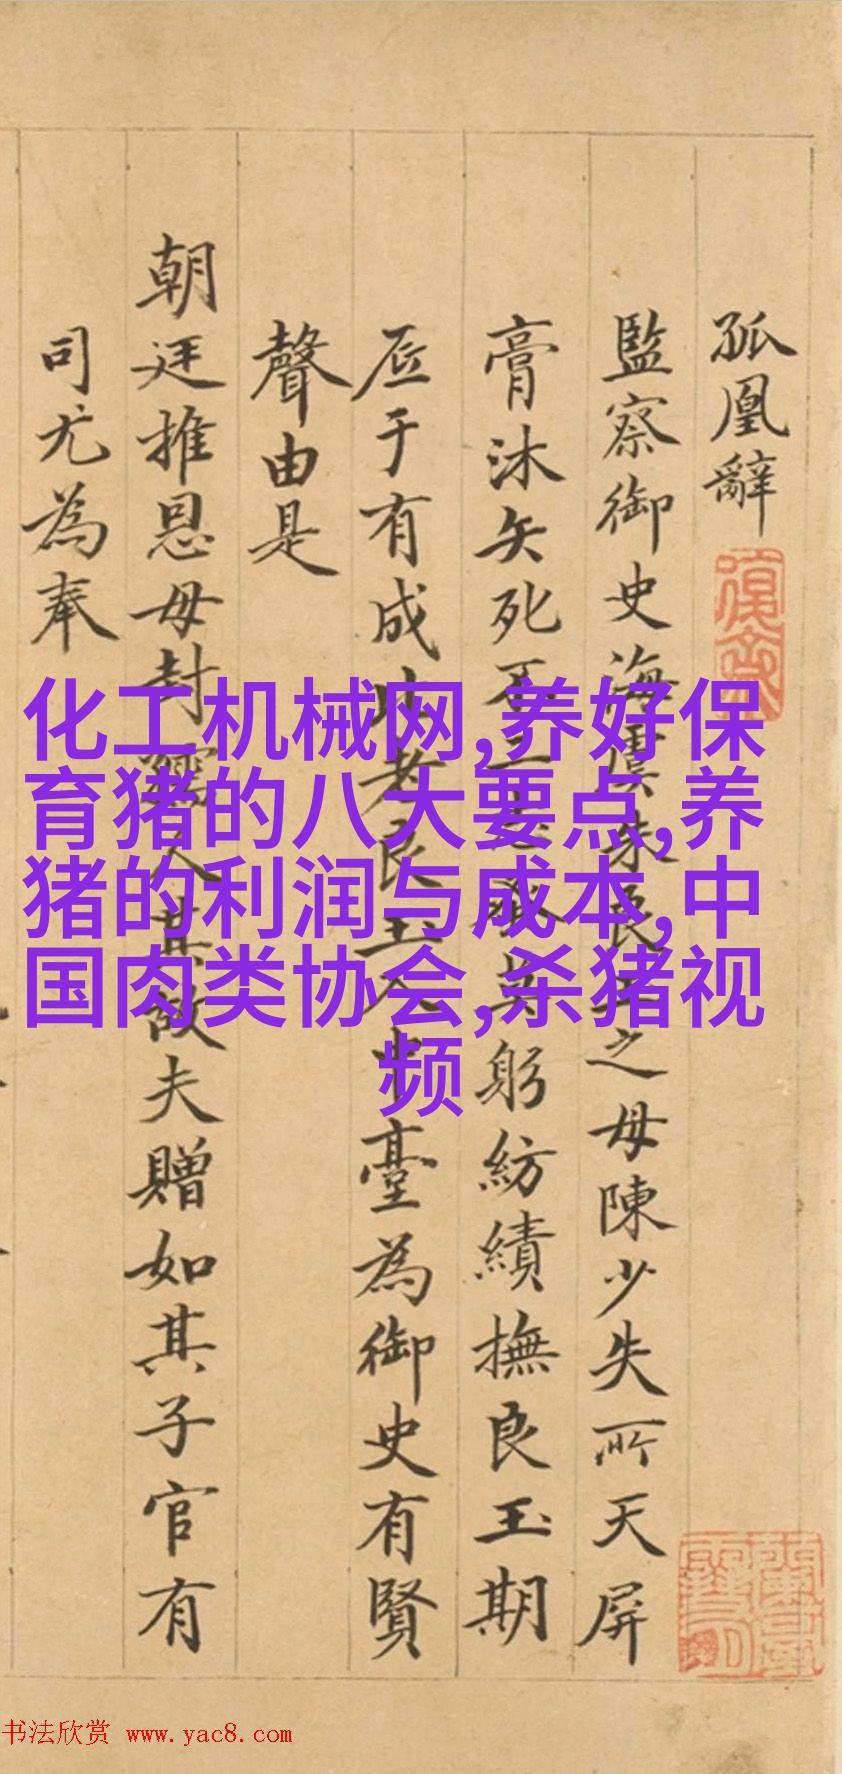 孤凰辭
監察御史海虞朱良玉之母陳少失所天屏
膏沐矢死不二躬紡績撫良玉期
于有成良玉入中臺為御史有賢
聲由是
朝廷推恩母封孺人其故夫贈如其子官有
司尤為奉
化工机械网,养好保
育猪的八大要点,养
猪的利润与成本,中
国肉类协会,杀猪视
频
书法欣赏 www.yac8.com